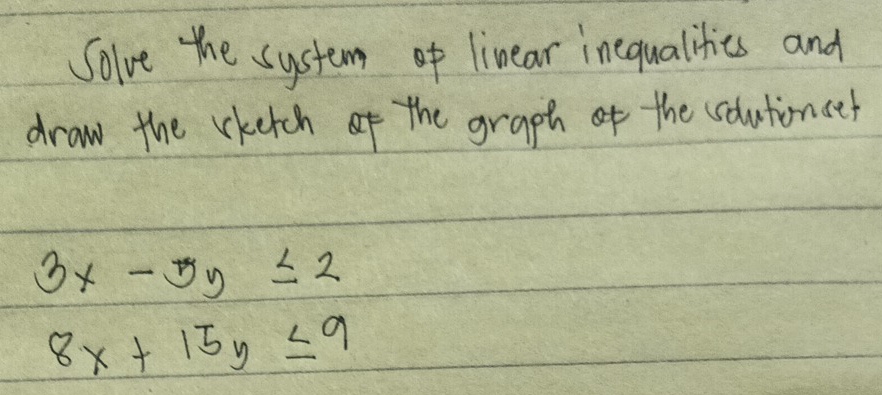 Solve the system of linear inequalities and
draw the sketch of the graph of the solution set
3x - 5y ≤ 2
8x + 15y ≤ 9